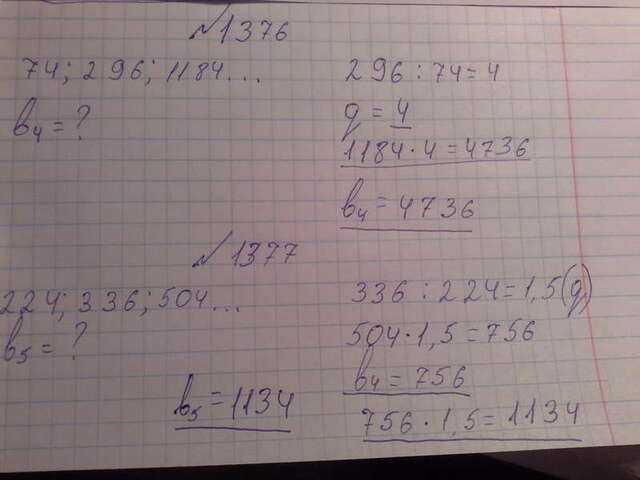 №1376
74; 296; 1184...
b₄ = ?
296 : 74 = 4
q = 4
1184 · 4 = 4736
b₄ = 4736
№1377
224; 336; 504...
b₅ = ?
336 : 224 = 1,5 (q)
504 · 1,5 = 756
b₄ = 756
756 · 1,5 = 1134
b₅ = 1134